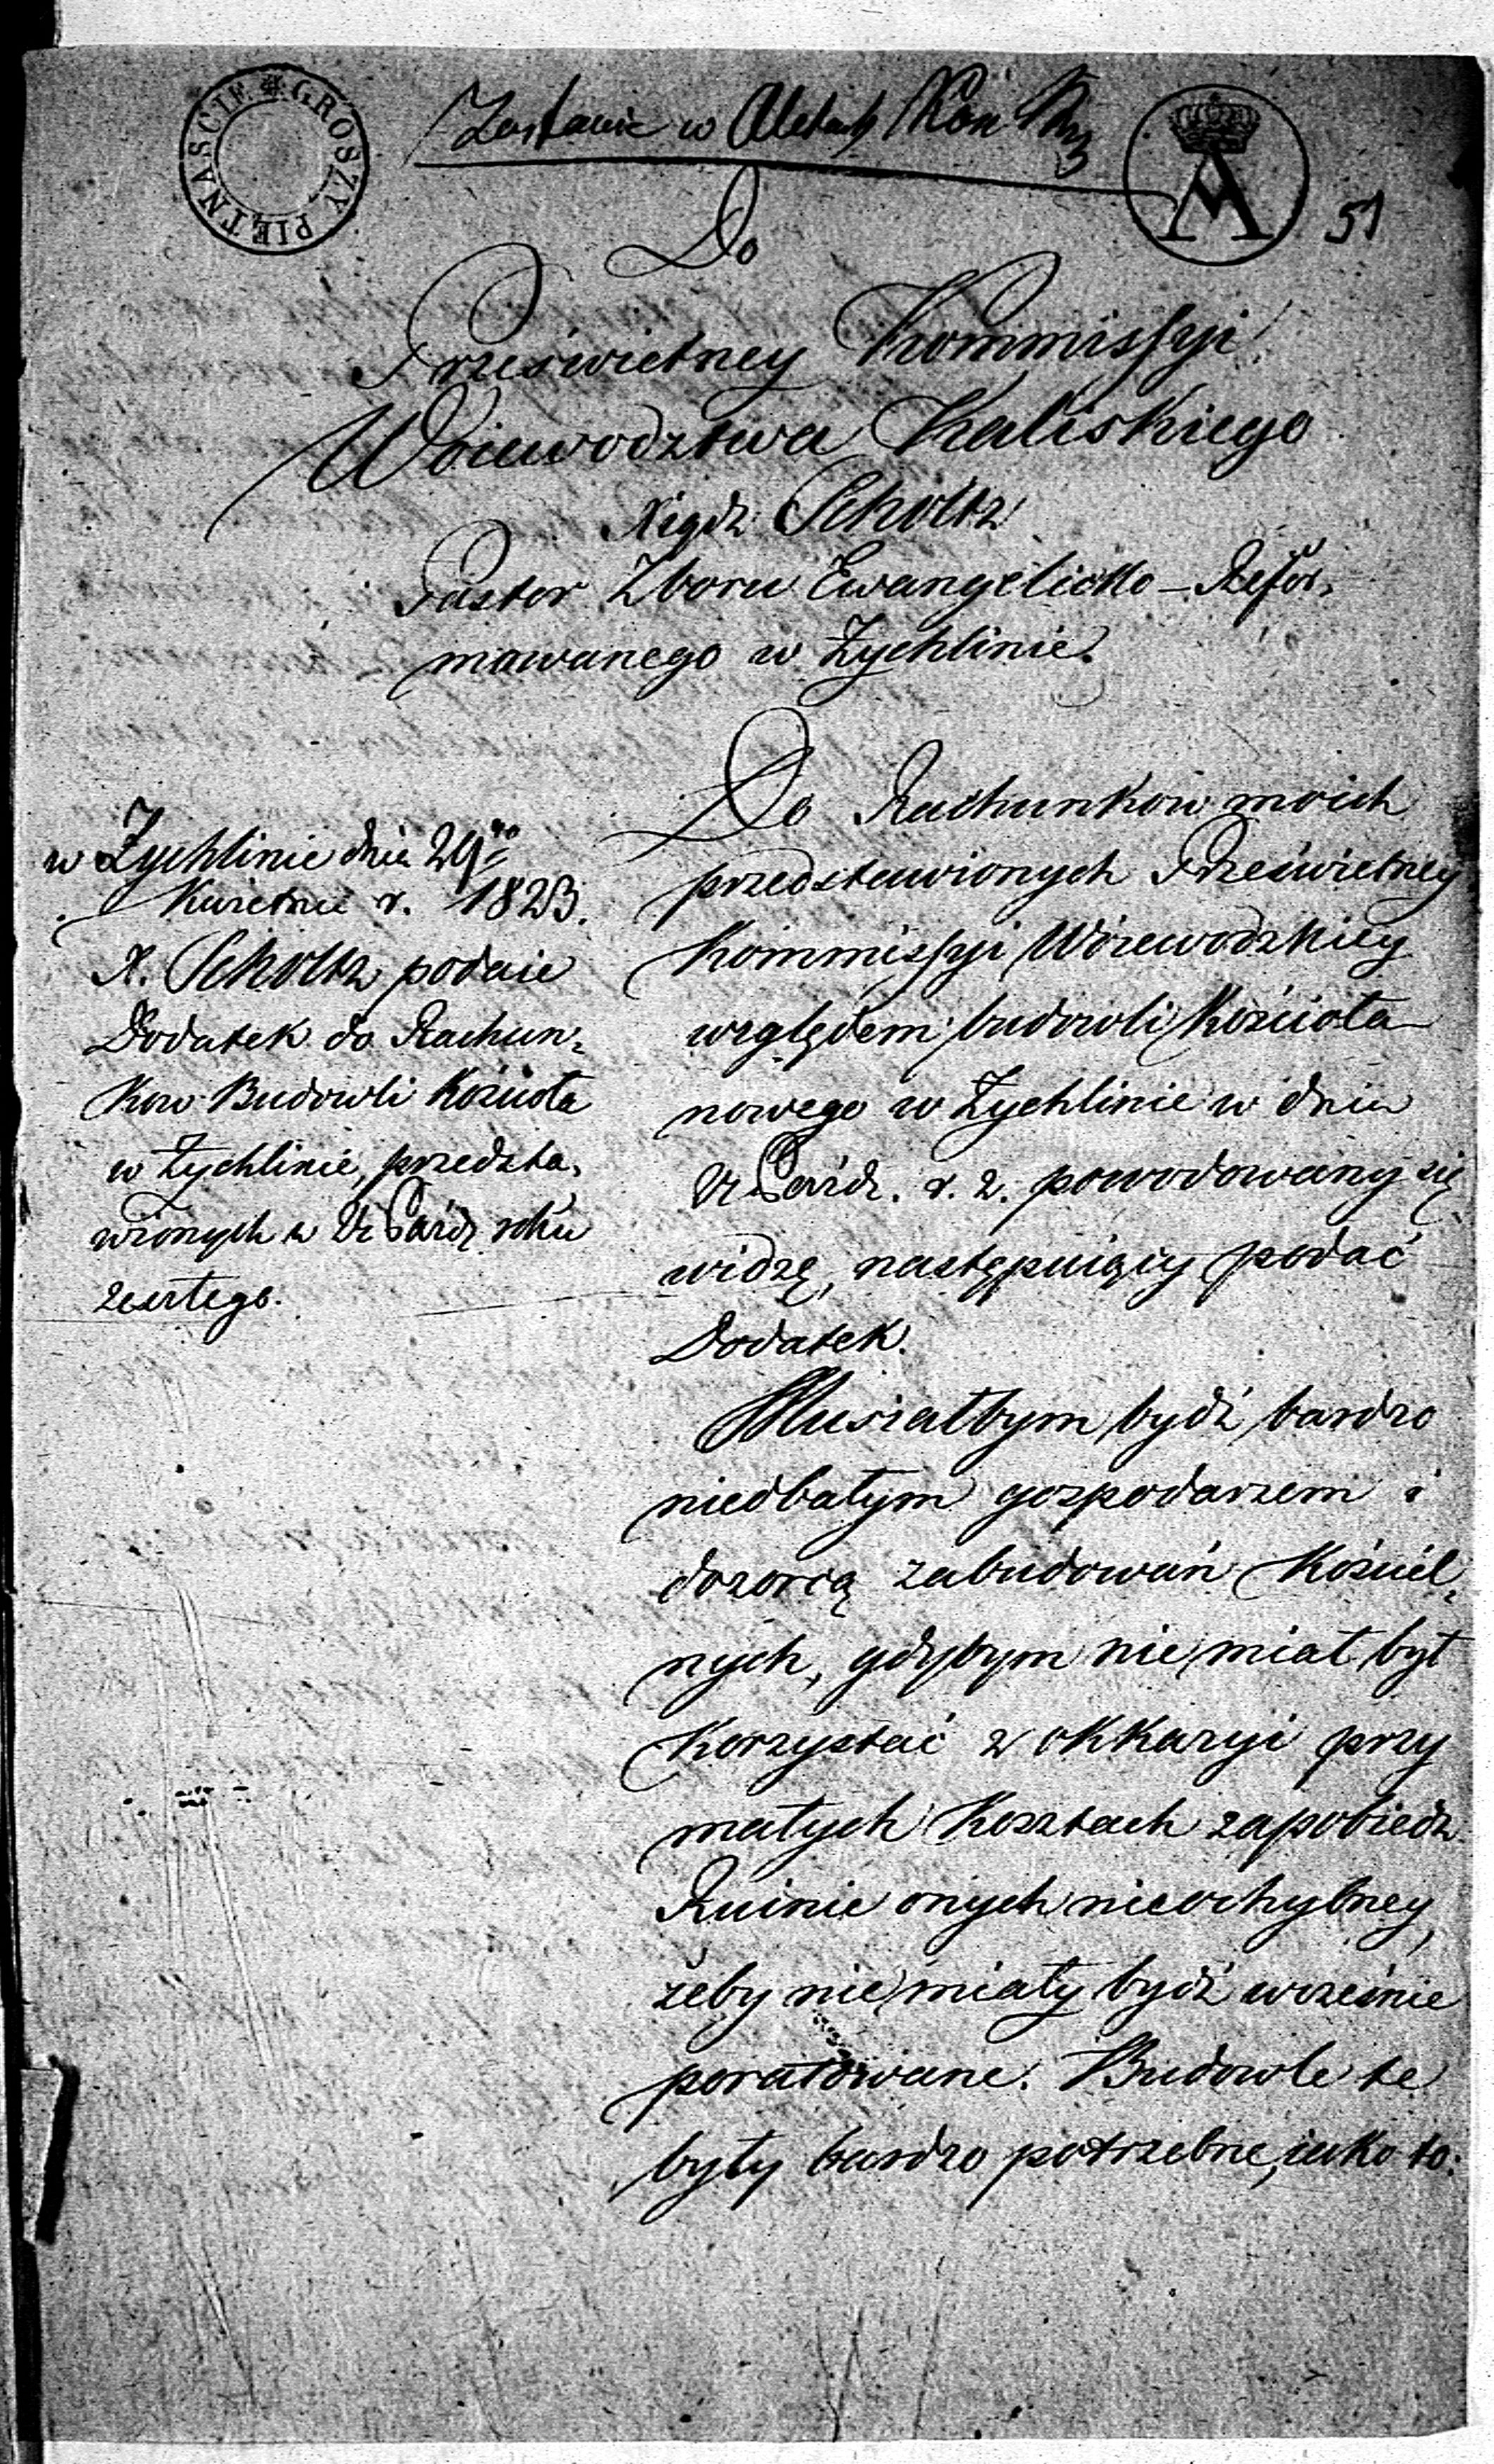 PIĘTNAŚCIE GROSZY
Zostanie w Aktach
51
Do
Prześwietney Kommissyi
Woiewodztwa Kaliskiego
Xiądz Scholtz
Pastor Zboru Ewangelicko-Refor„
mowanego w Żychlinie.
w Żychlinie dnia 29go
Kwietnia r. 1823.
X. Scholtz podaie
Dodatek do Rachun„
kow Budowli Kościoła
w Żychlinie, przedsta„
wionych w Paźdz. roku
zeszłego.
Do Rachunkow moich
przedstawionych Prześwietney
Kommissyi Woiewodzkiey
względem budowli Kościoła
nowego w Żychlinie w dniu
Paźdz. r. z. powodowany się
widzę, następuiący podać
Dodatek.
Musiałbym bydź bardzo
niedbałym gospodarzem i
dozorcą zabudowań Kościel„
nych, gdybym nie miał był
korzystać z okkazyi przy
małych kosztach zapobiedz
Ruinie onych nieochybney,
żeby nie miały bydź wcześnie
poratowane. Budowle te
były bardzo potrzebne, iako to: